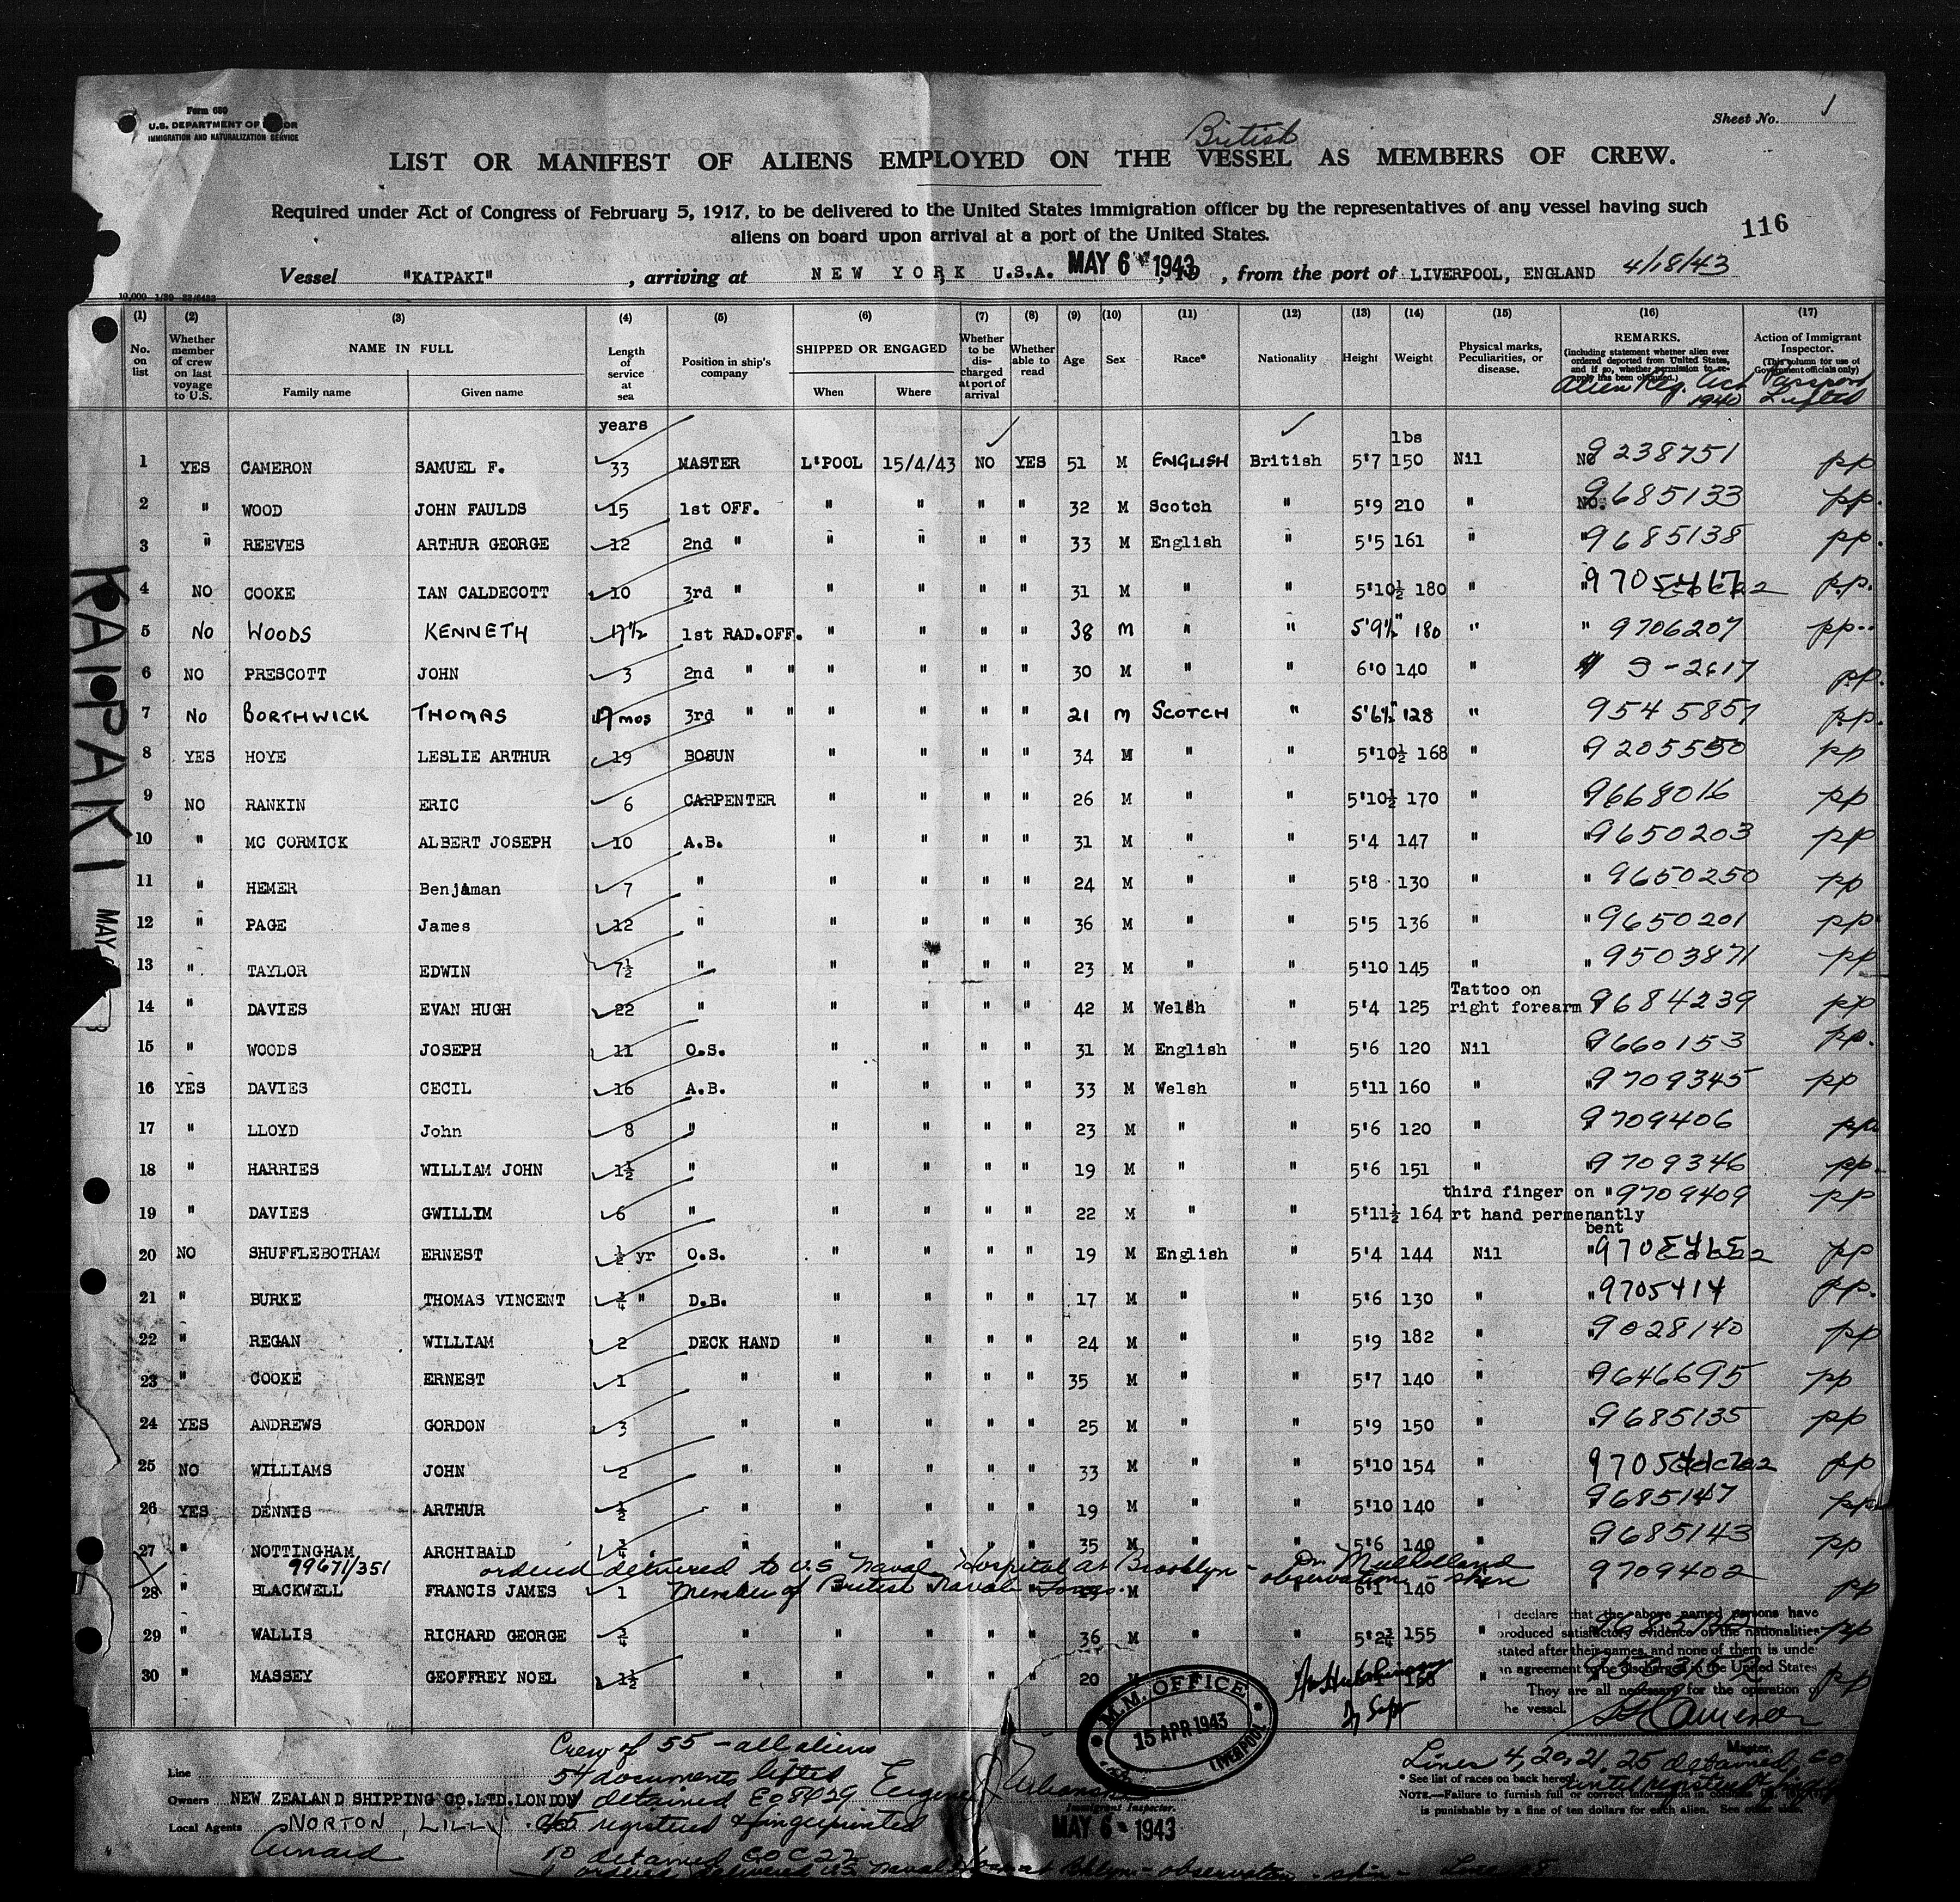 Form 680
U.S. DEPARTMENT OF
IMMIGRATION AND NATURALIZATION SERVICE
Sheet No. 1
British
LIST OR MANIFEST OF ALIENS EMPLOYED ON THE VESSEL AS MEMBERS OF CREW.
Required under Act of Congress of February 5, 1917, to be delivered to the United States immigration officer by the representatives of any vessel having such
aliens on board upon arrival at a port of the United States.
116
Vessel "KAIPAKI", arriving at NEW YORK, U.S.A. MAY 6 1943, from the port of LIVERPOOL, ENGLAND 4/18/43
(1) No. on list
(2) Whether member of crew on last voyage to U.S.
(3) NAME IN FULL Family name Given name
(4) Length of service at sea
(5) Position in ship's company
(6) SHIPPED OR ENGAGED When Where
(7) Whether to be discharged at port of arrival
(8) Whether able to read
(9) Age
(10) Sex
(11) Race*
(12) Nationality
(13) Height
(14) Weight
(15) Physical marks, Peculiarities, or disease.
(16) REMARKS. (Including statement whether alien ever ordered deported from United States, and if so, whether permission to reapply has been obtained.) Alien Reg. Act 1940
(17) Action of Immigrant Inspector. (This column for use of Government officials only) Passport Lifted
years lbs
1 YES CAMERON SAMUEL F. 33 MASTER L'POOL 15/4/43 NO YES 51 M ENGLISH British 5'7 150 Nil No 9238751 pp
2 " WOOD JOHN FAULDS 15 1st OFF. " " " " 32 M Scotch " 5'9 210 " No. 9685133 pp.
3 " REEVES ARTHUR GEORGE 12 2nd " " " " " 33 M English " 5'5 161 " " 9685138 pp.
4 NO COOKE IAN CALDECOTT 10 3rd " " " " " 31 M " " 5'10½ 180 " " pp.
5 No WOODS KENNETH 17½ 1st RAD.OFF. " " " " 38 M " " 5'9½" 180 " " 9706207 pp.
6 NO PRESCOTT JOHN 3 2nd " " " " " " 30 M " " 6'0 140 " pp.
7 No BORTHWICK THOMAS mos 3rd " " " " " " 21 M SCOTCH " 5'6½" 128 " 9545857 pp.
8 YES HOYE LESLIE ARTHUR 19 BOSUN " " " " 34 M " " 5'10½ 168 " " 9205550 pp
9 NO RANKIN ERIC 6 CARPENTER " " " " 26 M " " 5'10½ 170 " " 9668016 pp
10 " MC CORMICK ALBERT JOSEPH 10 A.B. " " " " 31 M " " 5'4 147 " " 9650203 pp
11 " HEMER Benjaman 7 " " " " " 24 M " " 5'8 130 " " 9650250 pp
12 " PAGE James 12 " " " " " 36 M " " 5'5 136 " " 9650201 pp
13 " TAYLOR EDWIN 7½ " " " " " 23 M " " 5'10 145 " " 9503871 pp
14 " DAVIES EVAN HUGH 22 " " " " " 42 M Welsh " 5'4 125 Tattoo on right forearm 9684239 pp
15 " WOODS JOSEPH 11 O.S. " " " " 31 M English " 5'6 120 Nil " 9660153 pp.
16 YES DAVIES CECIL 16 A.B. " " " " 33 M Welsh " 5'11 160 " " 9709345 pp
17 " LLOYD John 8 " " " " " 23 M " " 5'6 120 " " 9709406 pp.
18 " HARRIES WILLIAM JOHN 1½ " " " " " 19 M " " 5'6 151 " " 9709346 pp.
19 " DAVIES GWILLYM 6 " " " " " 22 M " " 5'11½ 164 third finger on rt hand permenantly bent " 9709409 pp
20 NO SHUFFLEBOTHAM ERNEST ½ yr O.S. " " " " 19 M English " 5'4 144 Nil " pp
21 " BURKE THOMAS VINCENT ¾ " D.B. " " " " 17 M " " 5'6 130 " " 9705414 pp.
22 " REGAN WILLIAM 2 DECK HAND " " " " 24 M " " 5'9 182 " " 9028140 pp
23 " COOKE ERNEST 1 " " " " " 35 M " " 5'7 140 " " 9646695 pp
24 YES ANDREWS GORDON 3 " " " " " 25 M " " 5'9 150 " " 9685135 pp
25 NO WILLIAMS JOHN 2 " " " " " 33 M " " 5'10 154 " pp
26 YES DENNIS ARTHUR ½ " " " " " 19 M " " 5'10 140 " " 9685147 pp
27 " NOTTINGHAM ARCHIBALD ¾ " " " " " 35 M " " 5'6 140 " " 9685143 pp
99671/351 ordered delivered to U.S. Naval Hospital at Brooklyn - Dr. Mulholland
28 " BLACKWELL FRANCIS JAMES 1 Member of British Naval Forces. observation - skin 6'1 140 " 9709402 pp
29 " WALLIS RICHARD GEORGE ¾ " " " " " 36 M " " 5'2¾ 155 " pp
30 " MASSEY GEOFFREY NOEL 1½ " " " " " 20 M pp
KAIPAKI MAY
I declare that the above named persons have
produced satisfactory evidence of the nationalities
stated after their names, and none of them is under
an agreement to be discharged in the United States
They are all necessary for the operation of
the vessel.
Cameron
Master.
M.M. OFFICE
15 APR 1943
LIVERPOOL
Crew of 55 - all aliens
54 documents lifted
Line
1 detained E08429 Eugene J
Owners NEW ZEALAND SHIPPING CO.LTD.LONDON
registered & fingerprinted
Local Agents NORTON, LILLY
Cunard
10 detained COC22
1 ordered delivered U.S. Naval Hosp at Bklyn - observation - skin - Line 28
Immigrant Inspector.
MAY 6 - 1943
Lines 4, 20, 21, 25 detained
until registered
* See list of races on back hereof.
NOTE.—Failure to furnish full or correct information in columns
is punishable by a fine of ten dollars for each alien. See other side.